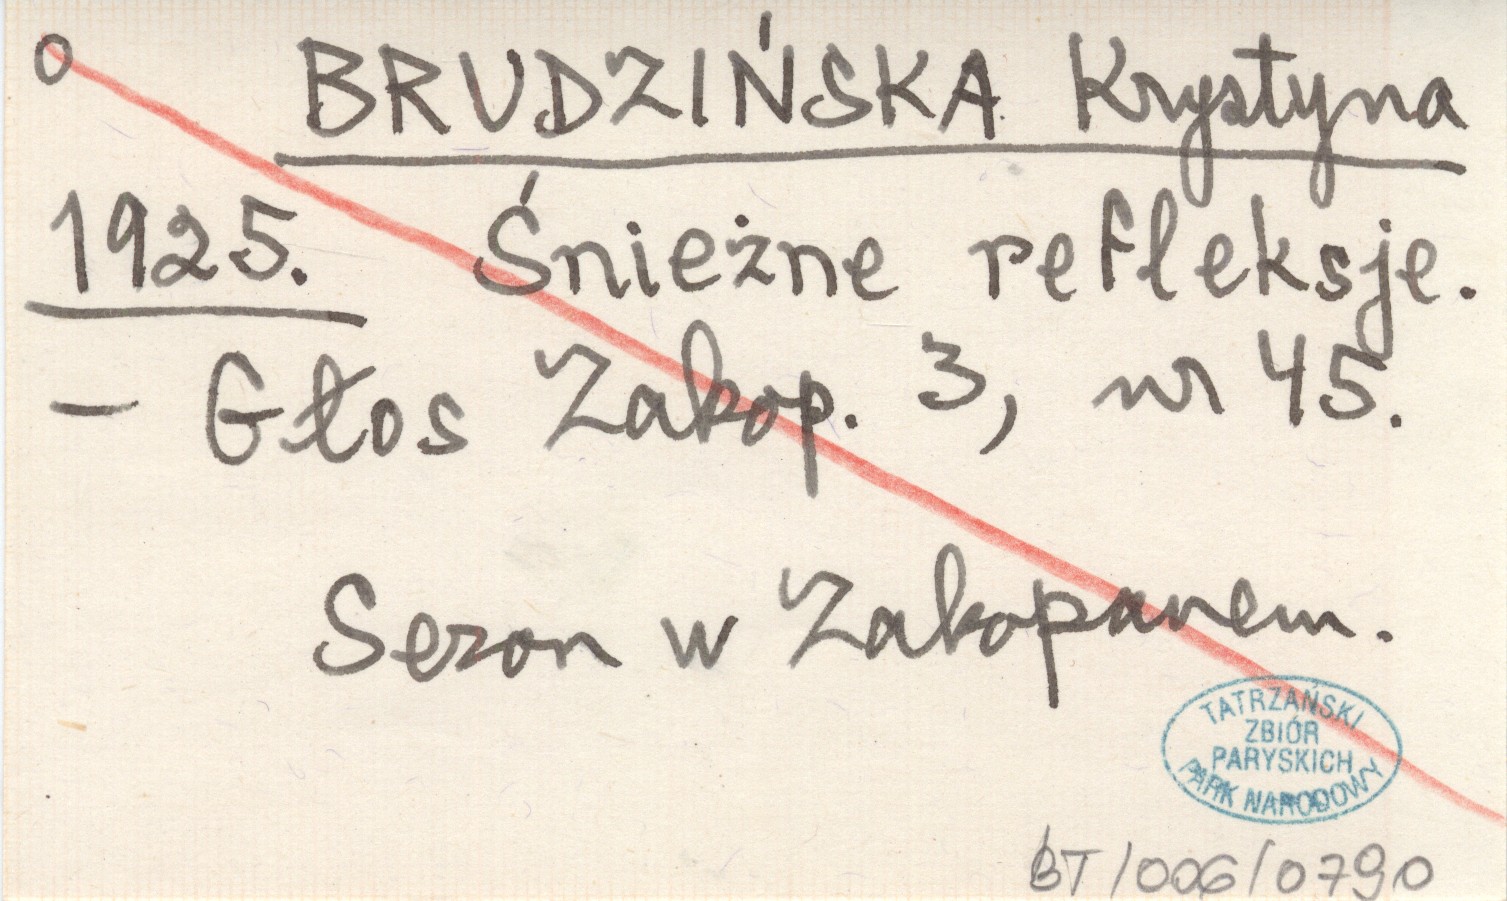 o BRUDZIŃSKA Krystyna
1925. Śnieżne refleksje.
– Głos Zakop. 3, nr 45.
Sezon w Zakopanem.
TATRZAŃSKI
ZBIÓR
PARYSKICH
PARK NARODOWY
BT/006/0790